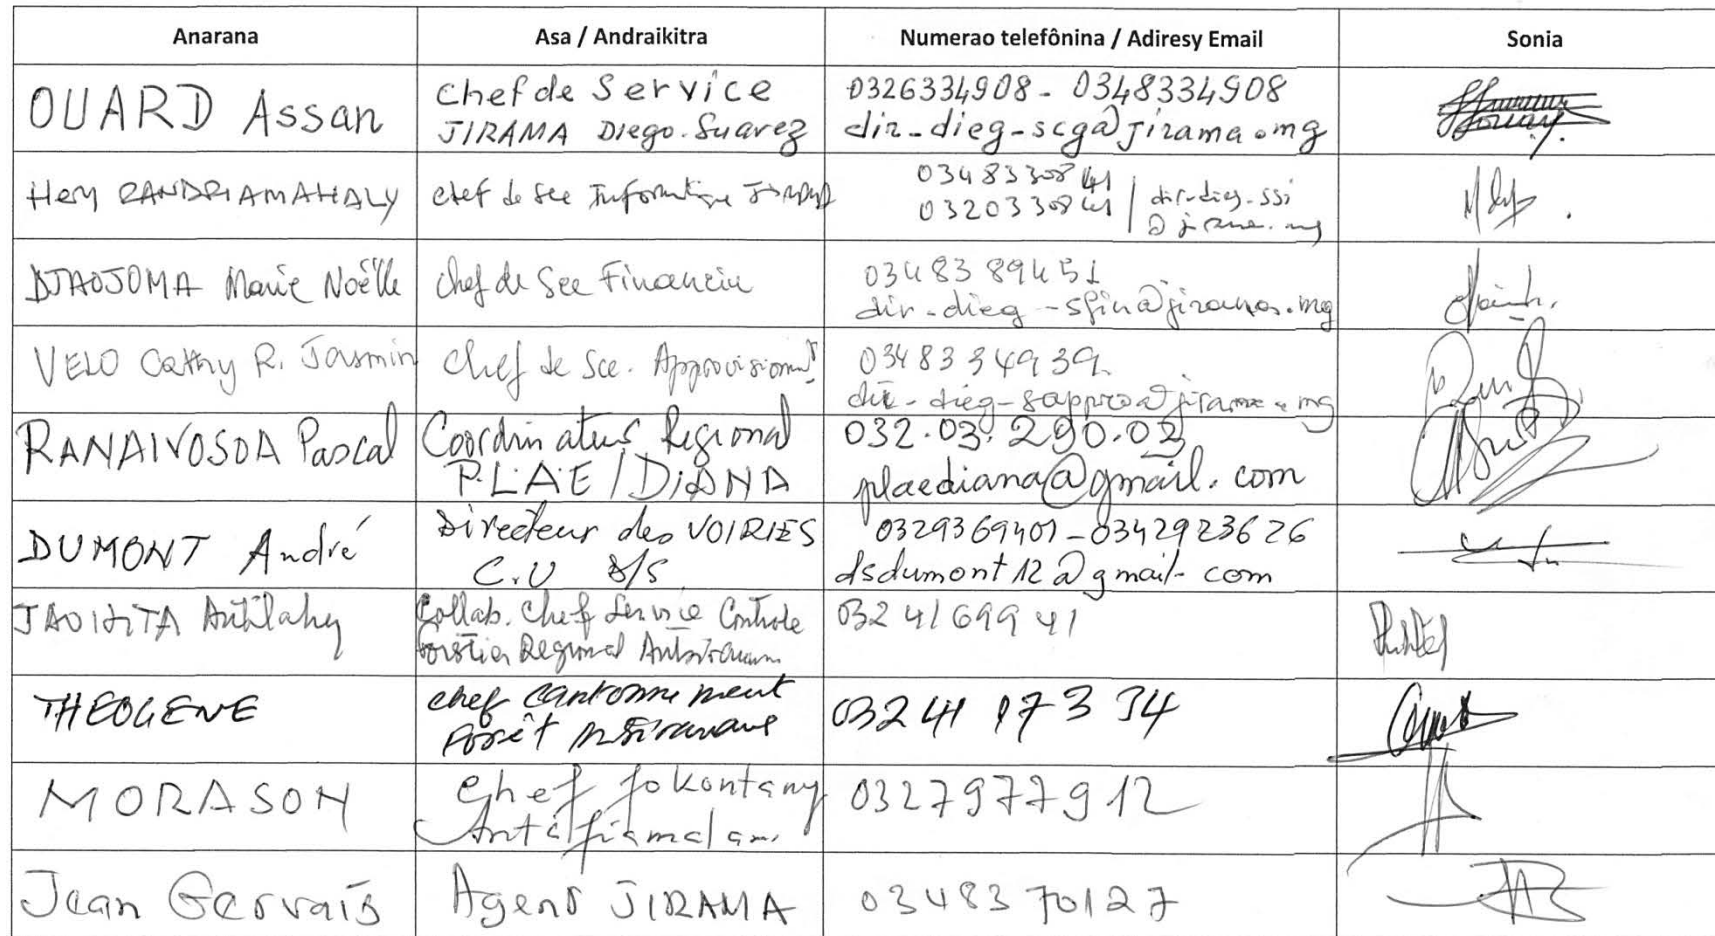 Anarana Asa / Andraikitra Numerao telefônina / Adiresy Email Sonia
OUARD Assan
Chef de Service
JIRAMA Diego-Suarez
0326334908 - 0348334908
dir-dieg-scga@jirama.mg
Hery RANDRIAMAHALY
chef de Sce Informatique JIRAMA
0348330841
0320330841 / dir-dieg-ssi
@jirama.mg
DJAOJOMA Marie Noëlle
Chef de Sce Financier
0348389451
dir-dieg-sfin@jirama.mg
VELO Cathy R. Jasmin
Chef de Sce. Approvisionnt
0348334939
dir-dieg-sappro@jirama.mg
RANAIVOSOA Pascal
Coordinateur Regional
PLAE / DiANA
032.03.290.02
plaediana@gmail.com
DUMONT André
Directeur des VOIRIES
C.U D/S
0329369401 - 0342923626
dsdumont12@gmail.com
Antilahy
Collab. Chef Service Controle
Forestier Regional
032 41 699 41
THEOGENE
chef cantonnement
Forêt Antsiranana
032 41 173 34
MORASON
Chef fokontany
0327977912
Jean Gervais
Agent JIRAMA
0348370127